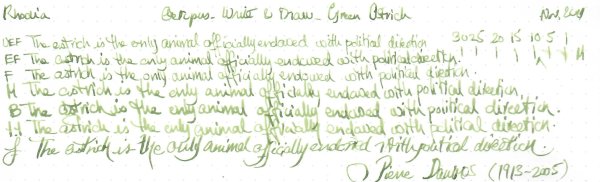 Rhodia Octopus Write & Draw Green Ostrich Nov. 2024
UEF The ostrich is the only animal officially endowed with political direction 30 25 20 15 10 5 1
EF The ostrich is the only animal officially endowed with political direction. M
F The ostrich is the only animal officially endowed with political direction.
M The ostrich is the only animal officially endowed with political direction
B The ostrich is the only animal officially endowed with political direction.
The ostrich is the only animal officially endowed with political direction.
The ostrich is the only animal officially endowed with political direction.
Pierre (1913-2005)